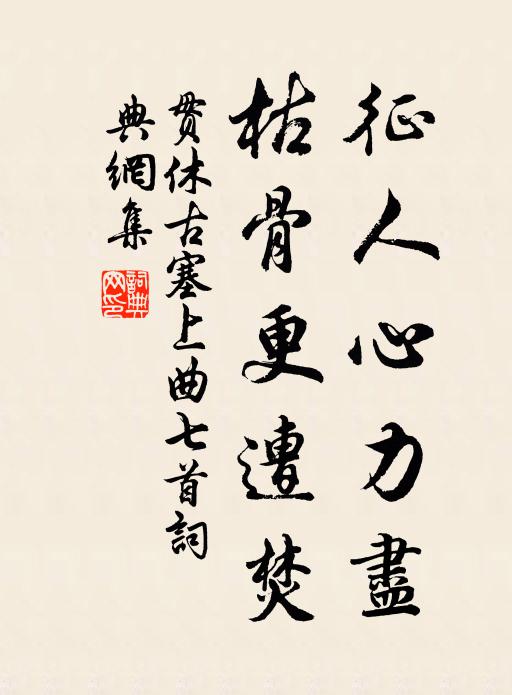 征人心力盡
枯骨更遭焚
貫休古塞上曲七首詞
典網集
詞典
网印